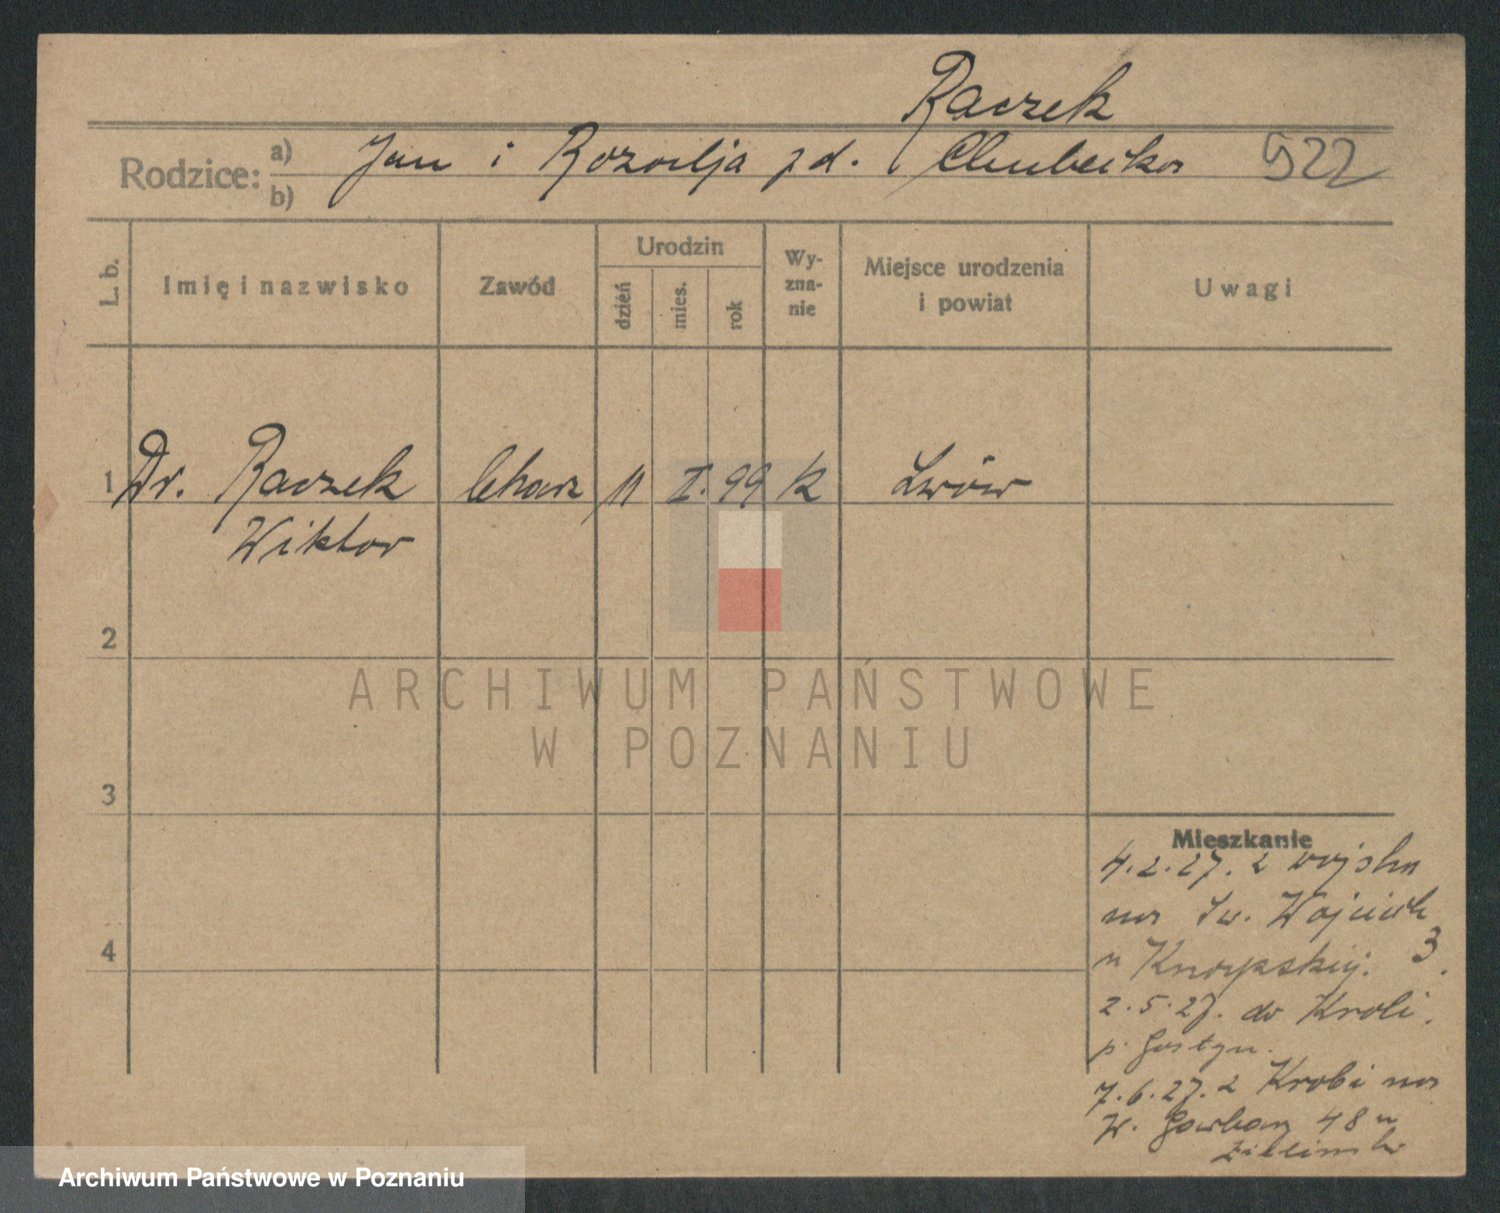 Raczek
Rodzice: a) b) Jan i Rozalja z d. 522
L. b. Imię i nazwisko Zawód Urodzin dzień mies. rok Wy-zna-nie Miejsce urodzenia i powiat Uwagi
1 Dr. Raczek lekarz 11 I. 99 k Lwów
Wiktor
2
ARCHIWUM PAŃSTWOWE
W POZNANIU
3
Mieszkanie
4.2.27. z wojska
na Św. Wojciech
4 u 3.
2.5.27. do Krobi.
p. Gostyn.
7.6.27. z Krobi na
W. Garbary 48 u
Zielinski
Archiwum Państwowe w Poznaniu